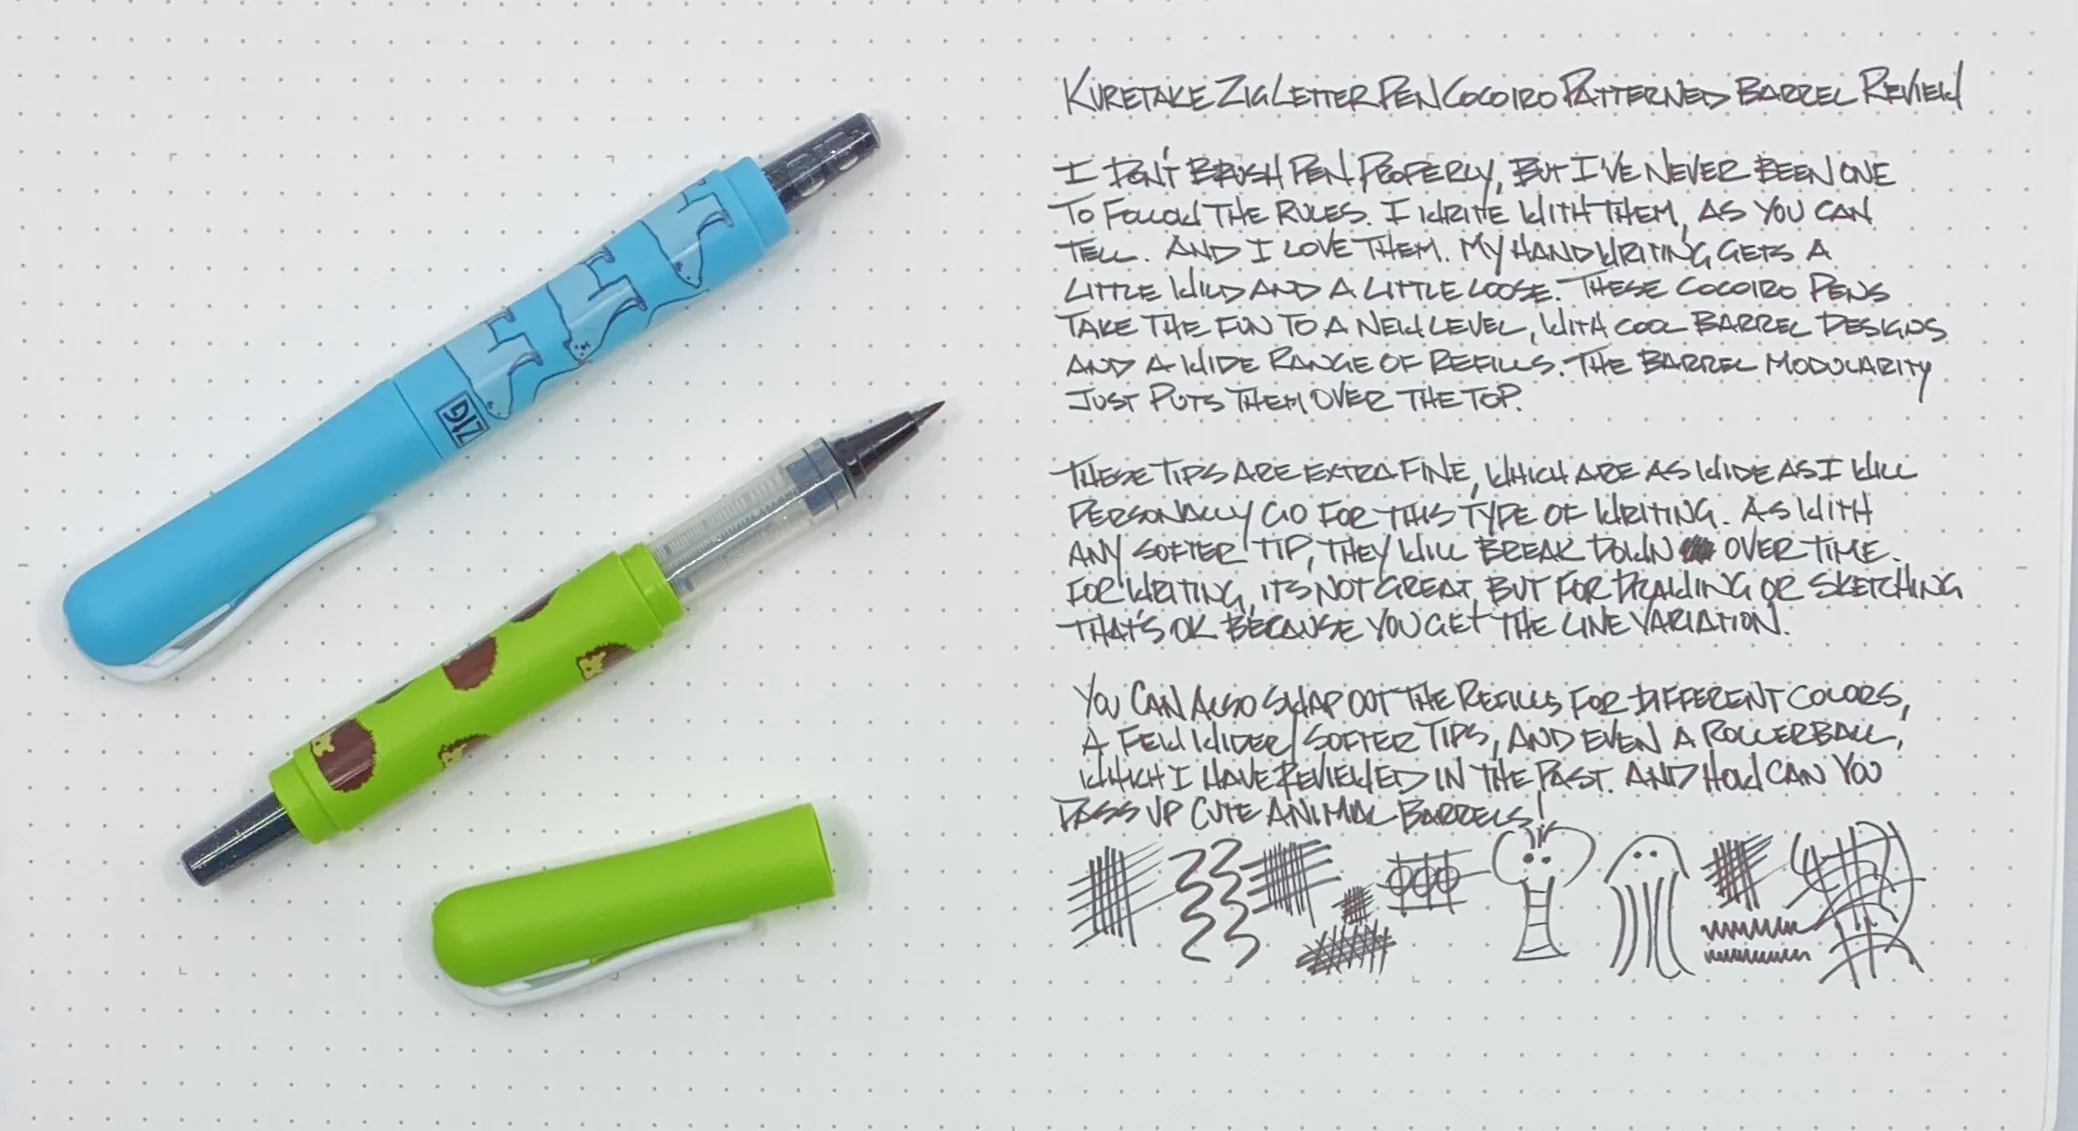 ZIG
KURETAKE ZIG LETTER PEN COCOIRO PATTERNED BARREL REVIEW
I DON'T BRUSH PEN PROPERLY, BUT I'VE NEVER BEEN ONE
TO FOLLOW THE RULES. I WRITE WITH THEM, AS YOU CAN
TELL. AND I LOVE THEM. MY HANDWRITING GETS A
LITTLE WILD AND A LITTLE LOOSE. THESE COCOIRO PENS
TAKE THE FUN TO A NEW LEVEL, WITH COOL BARREL DESIGNS
AND A WIDE RANGE OF REFILLS. THE BARREL MODULARITY
JUST PUTS THEM OVER THE TOP.
THESE TIPS ARE EXTRA FINE, WHICH ARE AS WIDE AS I WILL
PERSONALLY GO FOR THIS TYPE OF WRITING. AS WITH
ANY SOFTER TIP, THEY WILL BREAK DOWN OVER TIME.
FOR WRITING, IT'S NOT GREAT, BUT FOR DRAWING OR SKETCHING
THAT'S OK BECAUSE YOU GET THE LINE VARIATION.
YOU CAN ALSO SWAP OUT THE REFILLS FOR DIFFERENT COLORS,
A FEW WIDER/SOFTER TIPS, AND EVEN A ROLLERBALL,
WHICH I HAVE REVIEWED IN THE PAST. AND HOW CAN YOU
PASS UP CUTE ANIMAL BARRELS!